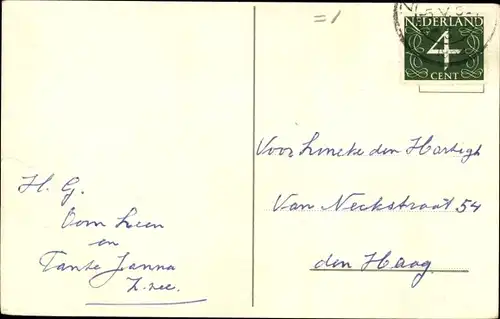 =1
NEDERLAND
4
CENT
H. G.
Oom Leen
en
Tante Janna
Z.zee.
Voor Lineke den Hartogh
Van Neckstraat 54
den Haag.